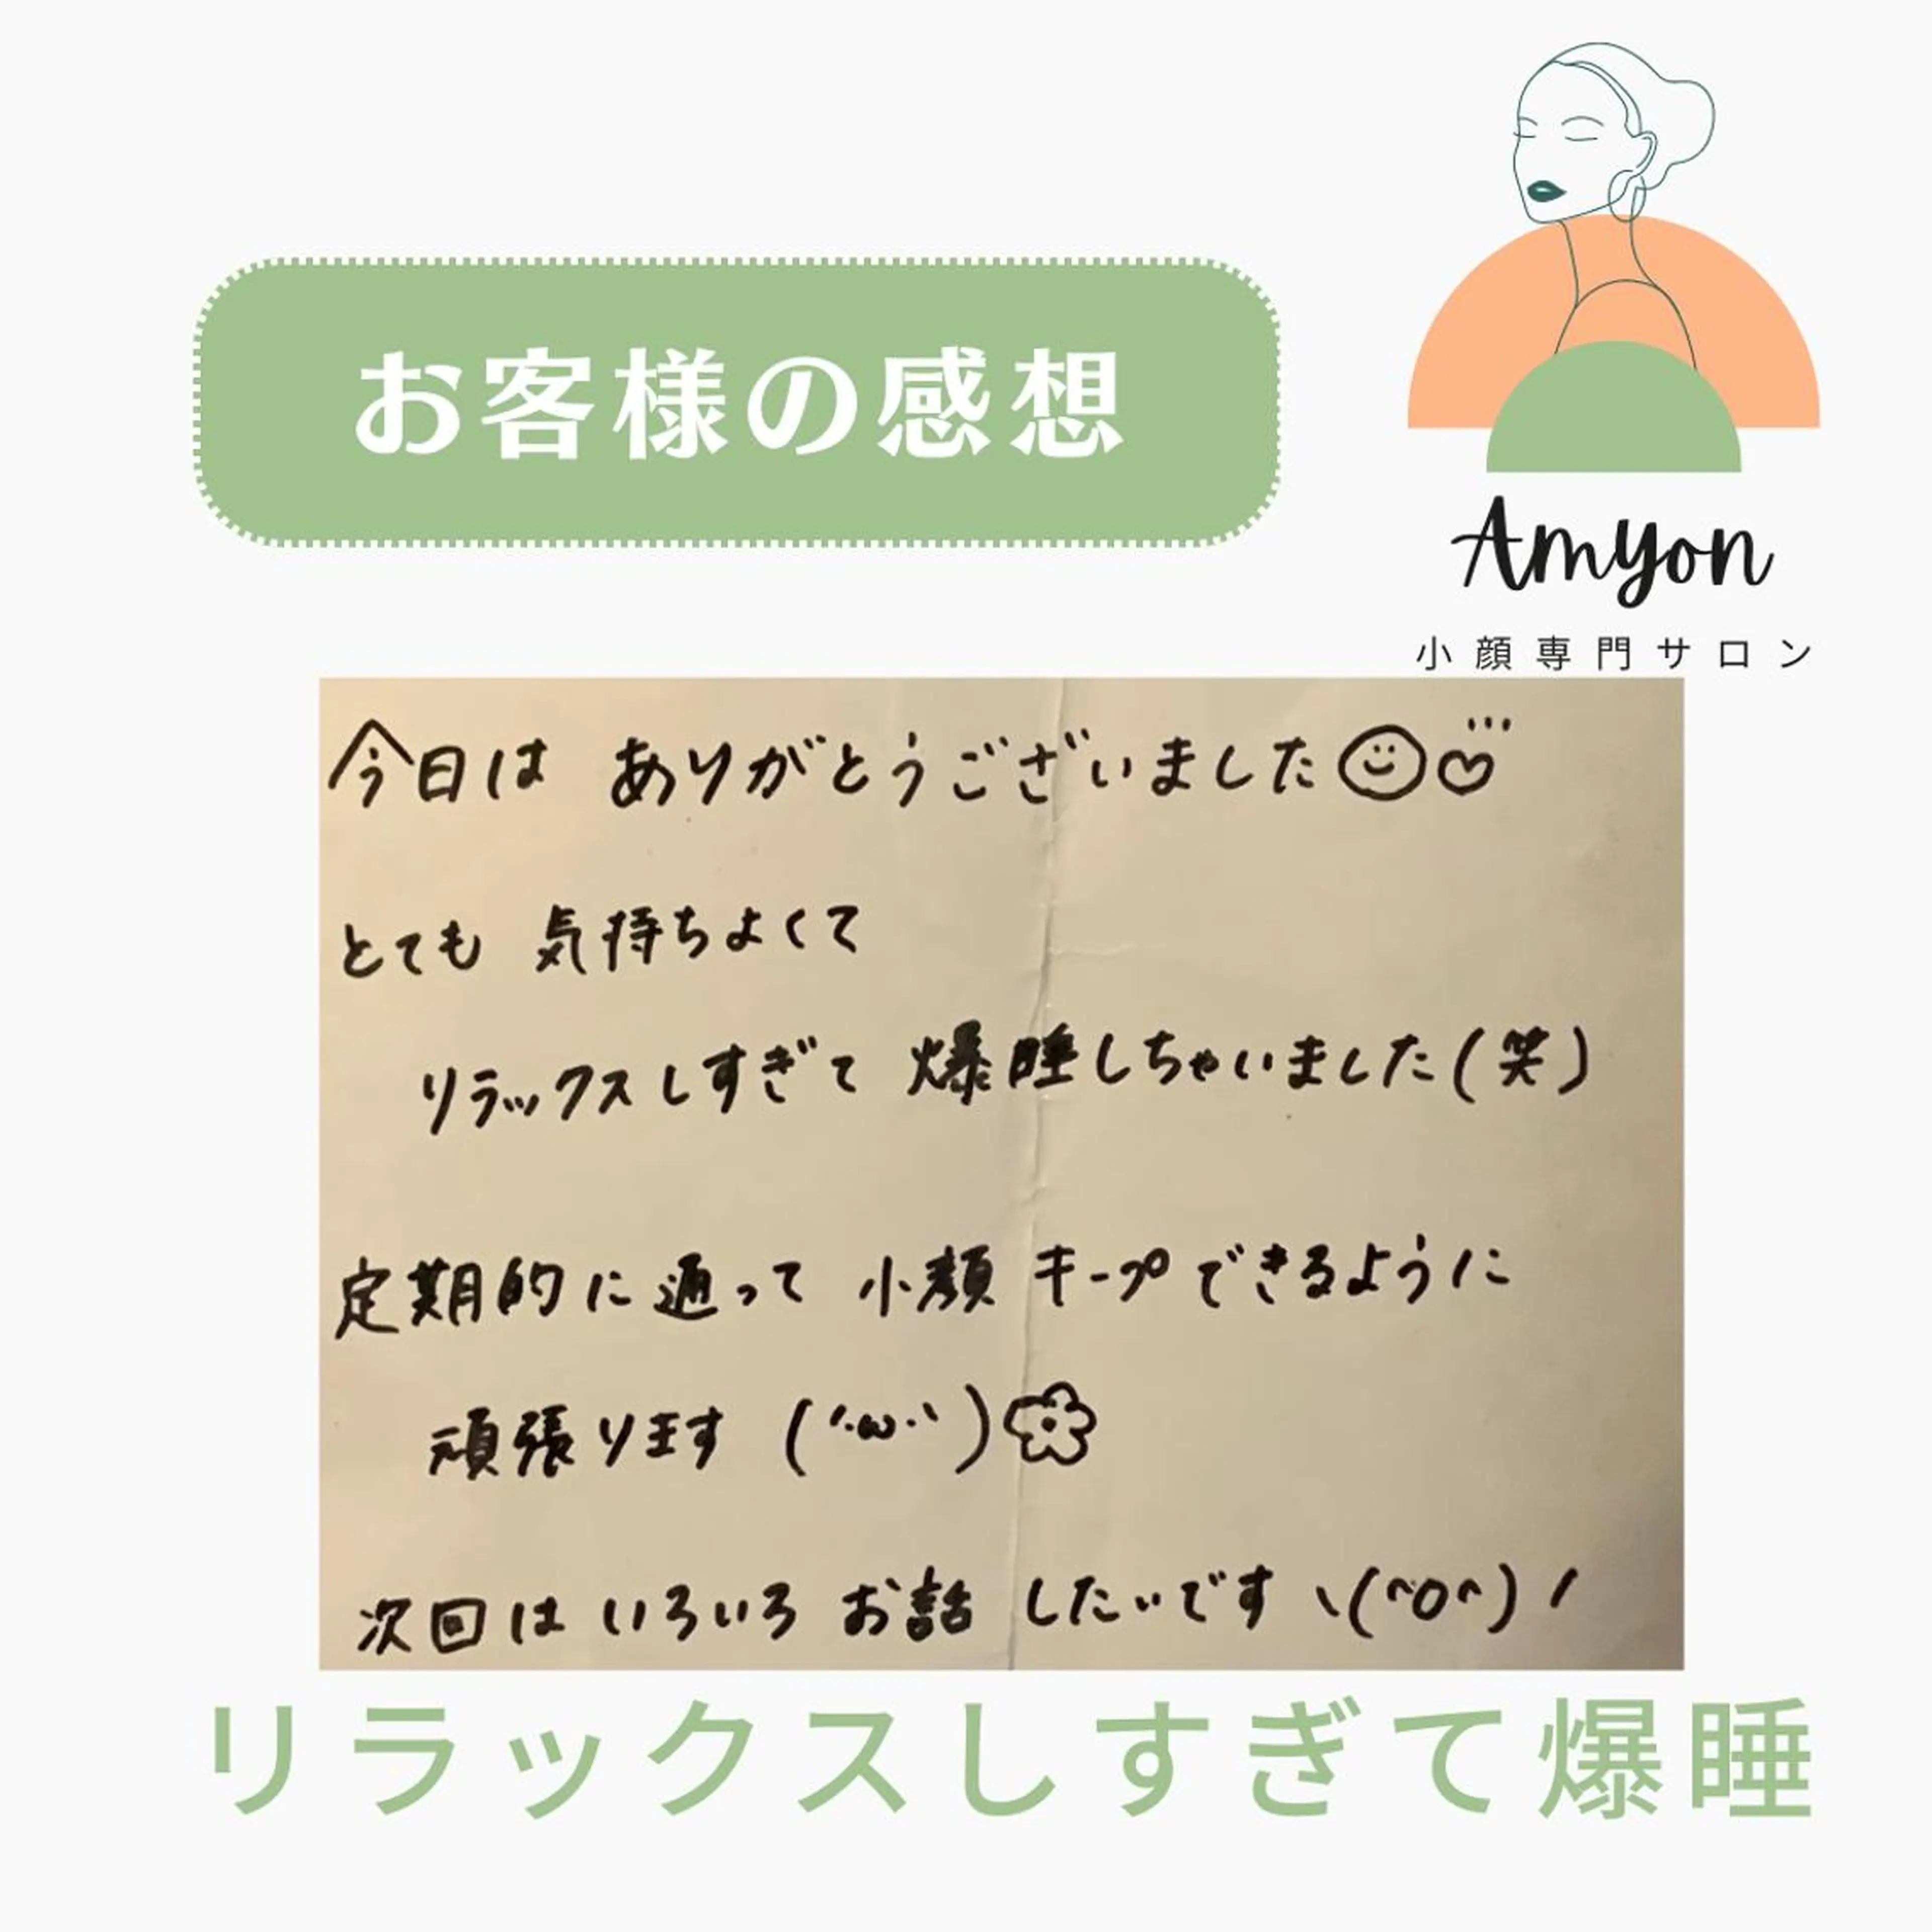 お客様の感想
Amyon
小顔専門サロン
今日は ありがとうございました
とても 気持ちよくて
リラックスしすぎて 爆睡しちゃいました(笑)
定期的に通って 小顔 キープできるように
頑張ります (´･ω･`)
次回は いろいろ お話 したいです ヽ(^o^)ノ
リラックスしすぎて爆睡